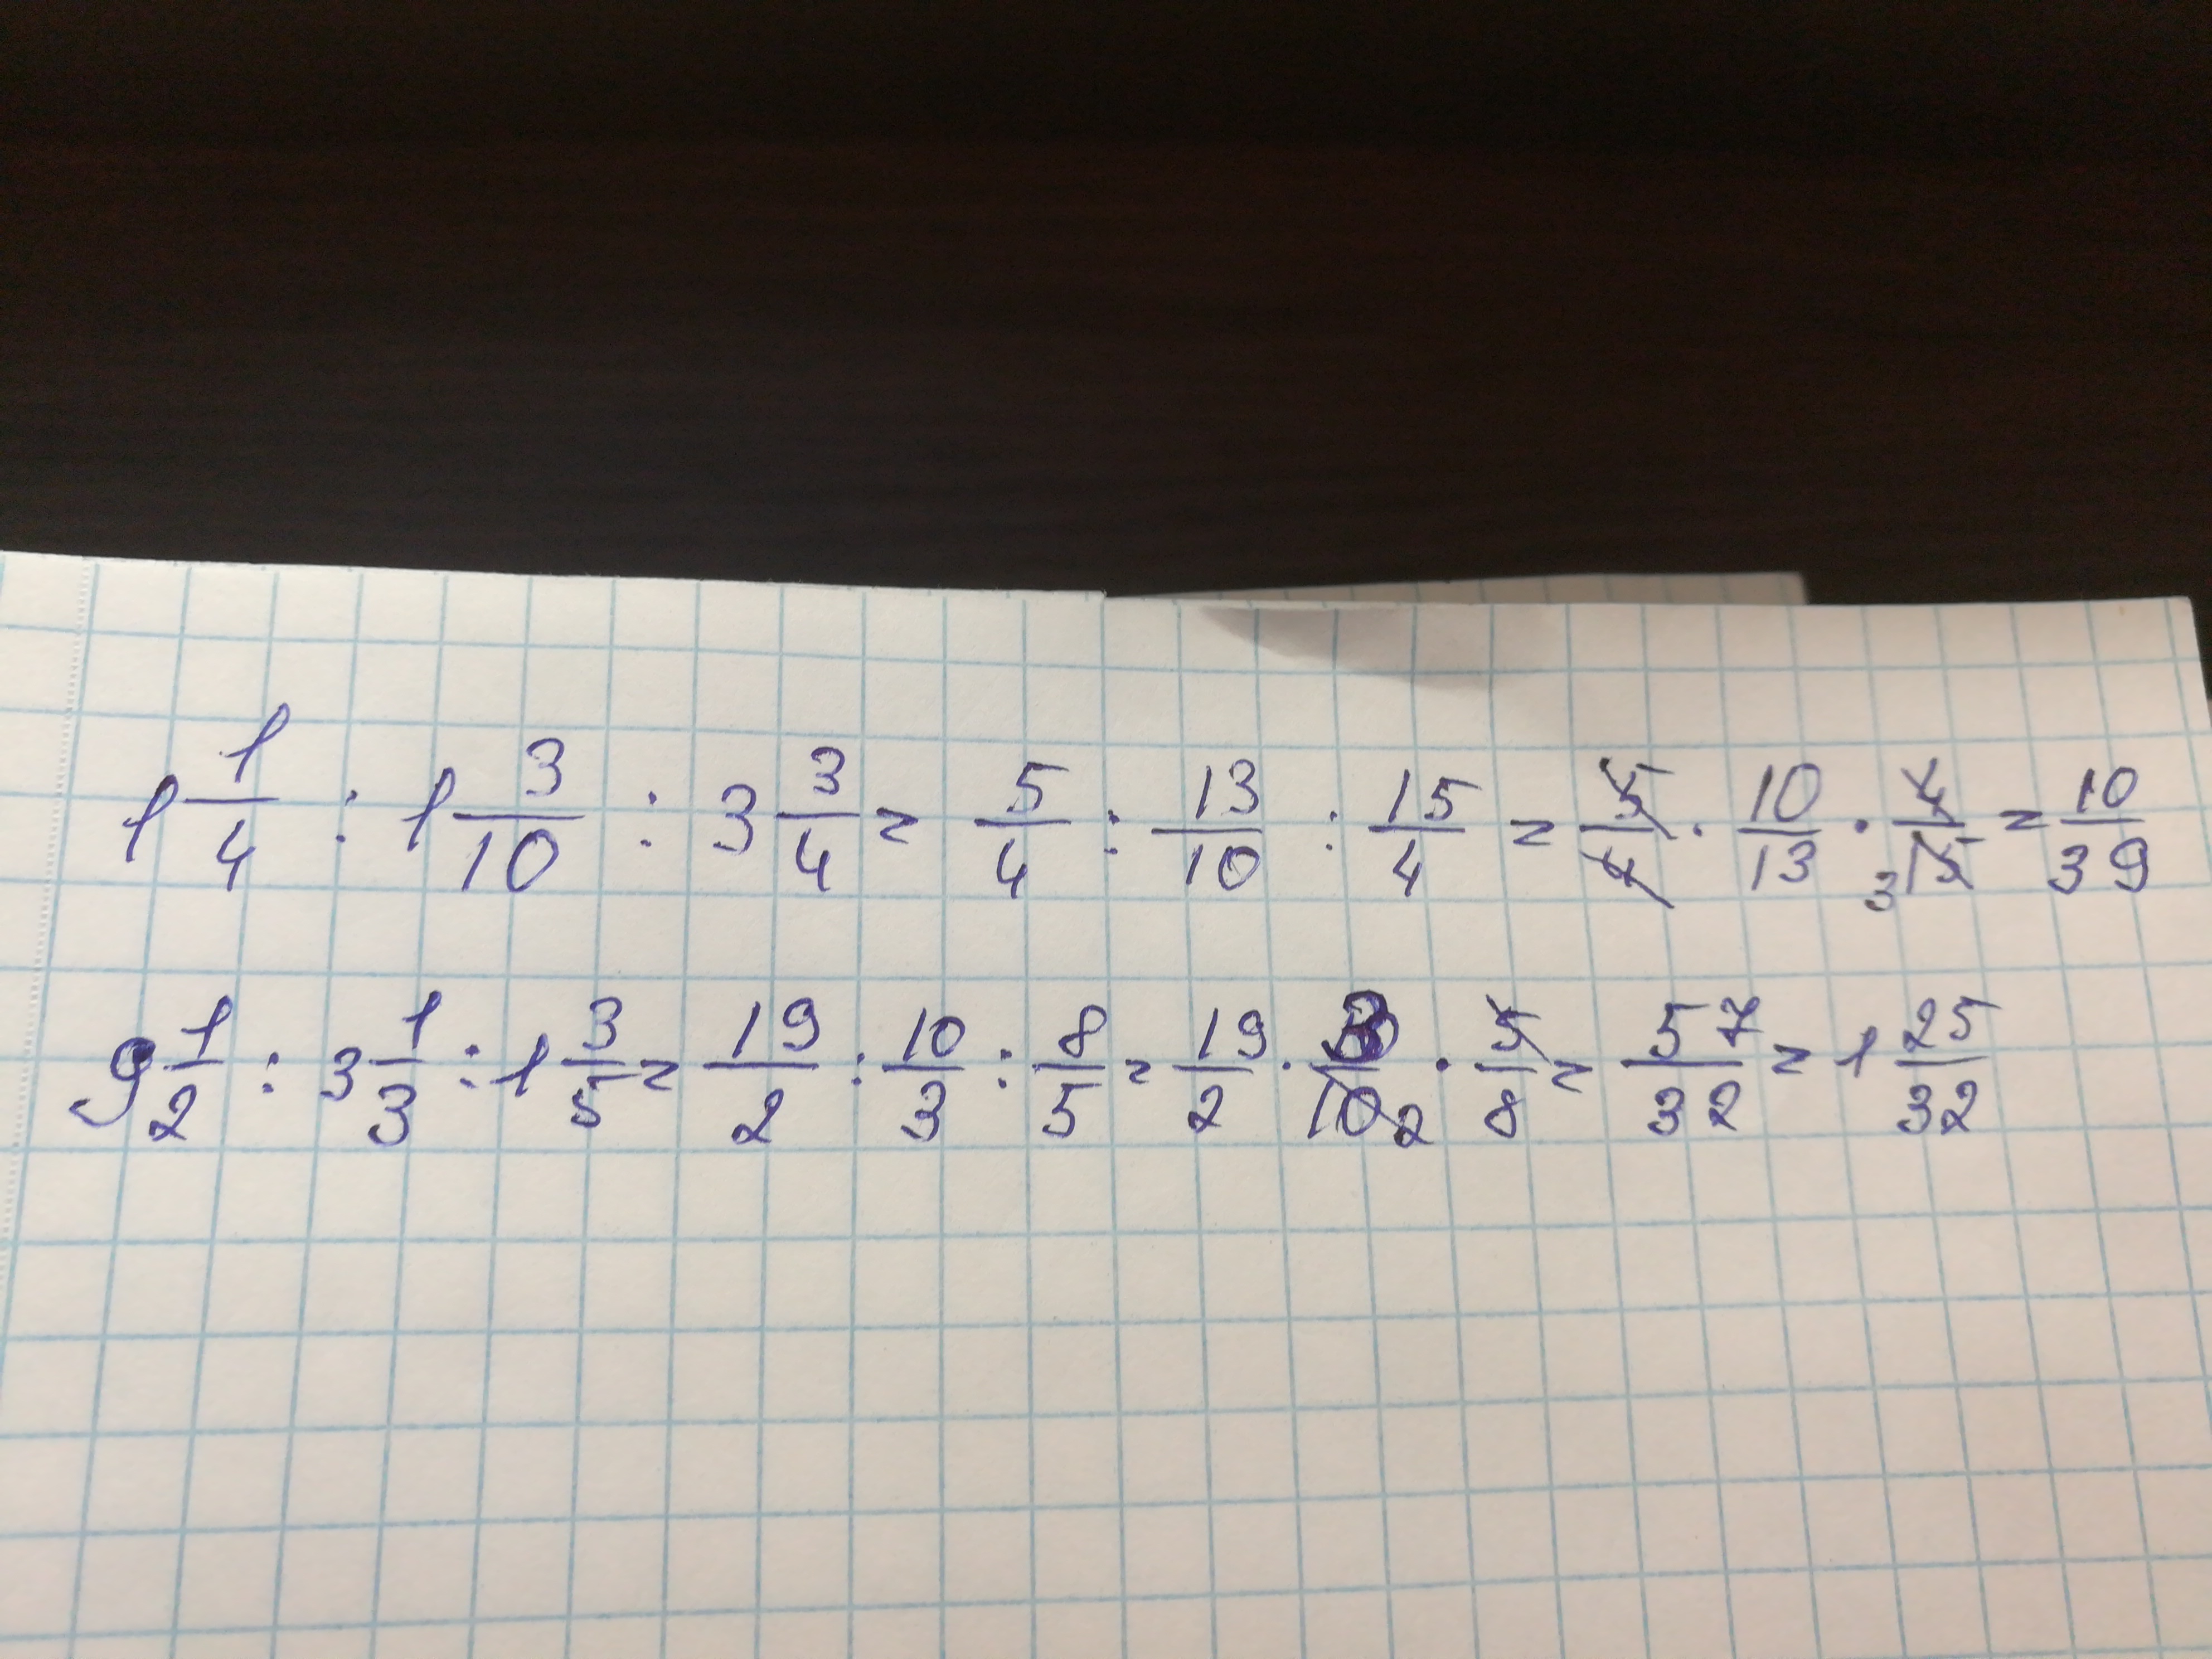 1 1/4 : 1 3/10 : 3 3/4 = 5/4 : 13/10 : 15/4 = 5/4 · 10/13 · 4/15 3 = 10/39
9 1/2 : 3 1/3 : 1 3/5 = 19/2 : 10/3 : 8/5 = 19/2 · 3/10 2 · 5/8 = 57/32 = 1 25/32